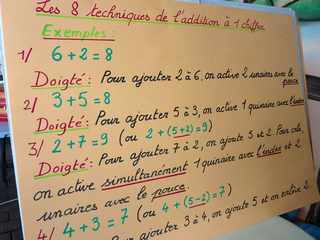 Les 8 techniques de l'addition à 1 chiffre
Exemples :
1/ 6+2=8
Doigté : Pour ajouter 2 à 6, on active 2 unaires avec le
pouce.
2/ 3+5=8
Doigté : Pour ajouter 5 à 3, on active 1 quinaire avec l'index
3/ 2+7=9 (ou 2+(5+2)=9)
Doigté : Pour ajouter 7 à 2, on ajoute 5 et 2. Pour cela,
on active simultanément 1 quinaire avec l'index et 2
unaires avec le pouce.
4/ 4+3=7 (ou 4+(5-2)=7)
Pour ajouter 3 à 4, on ajoute 5 et on enlève 2.